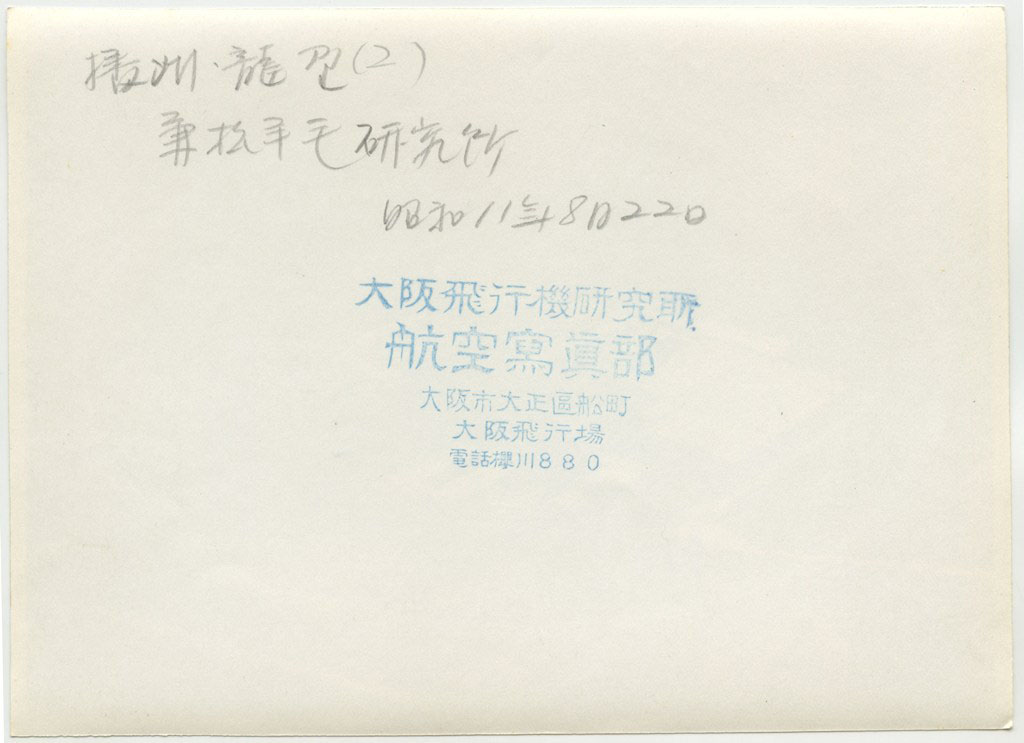 播州・龍野(2)
兼松羊毛研究所
昭和11年8月22日
大阪飛行機研究所
航空寫眞部
大阪市大正區船町
大阪飛行場
電話櫻川880